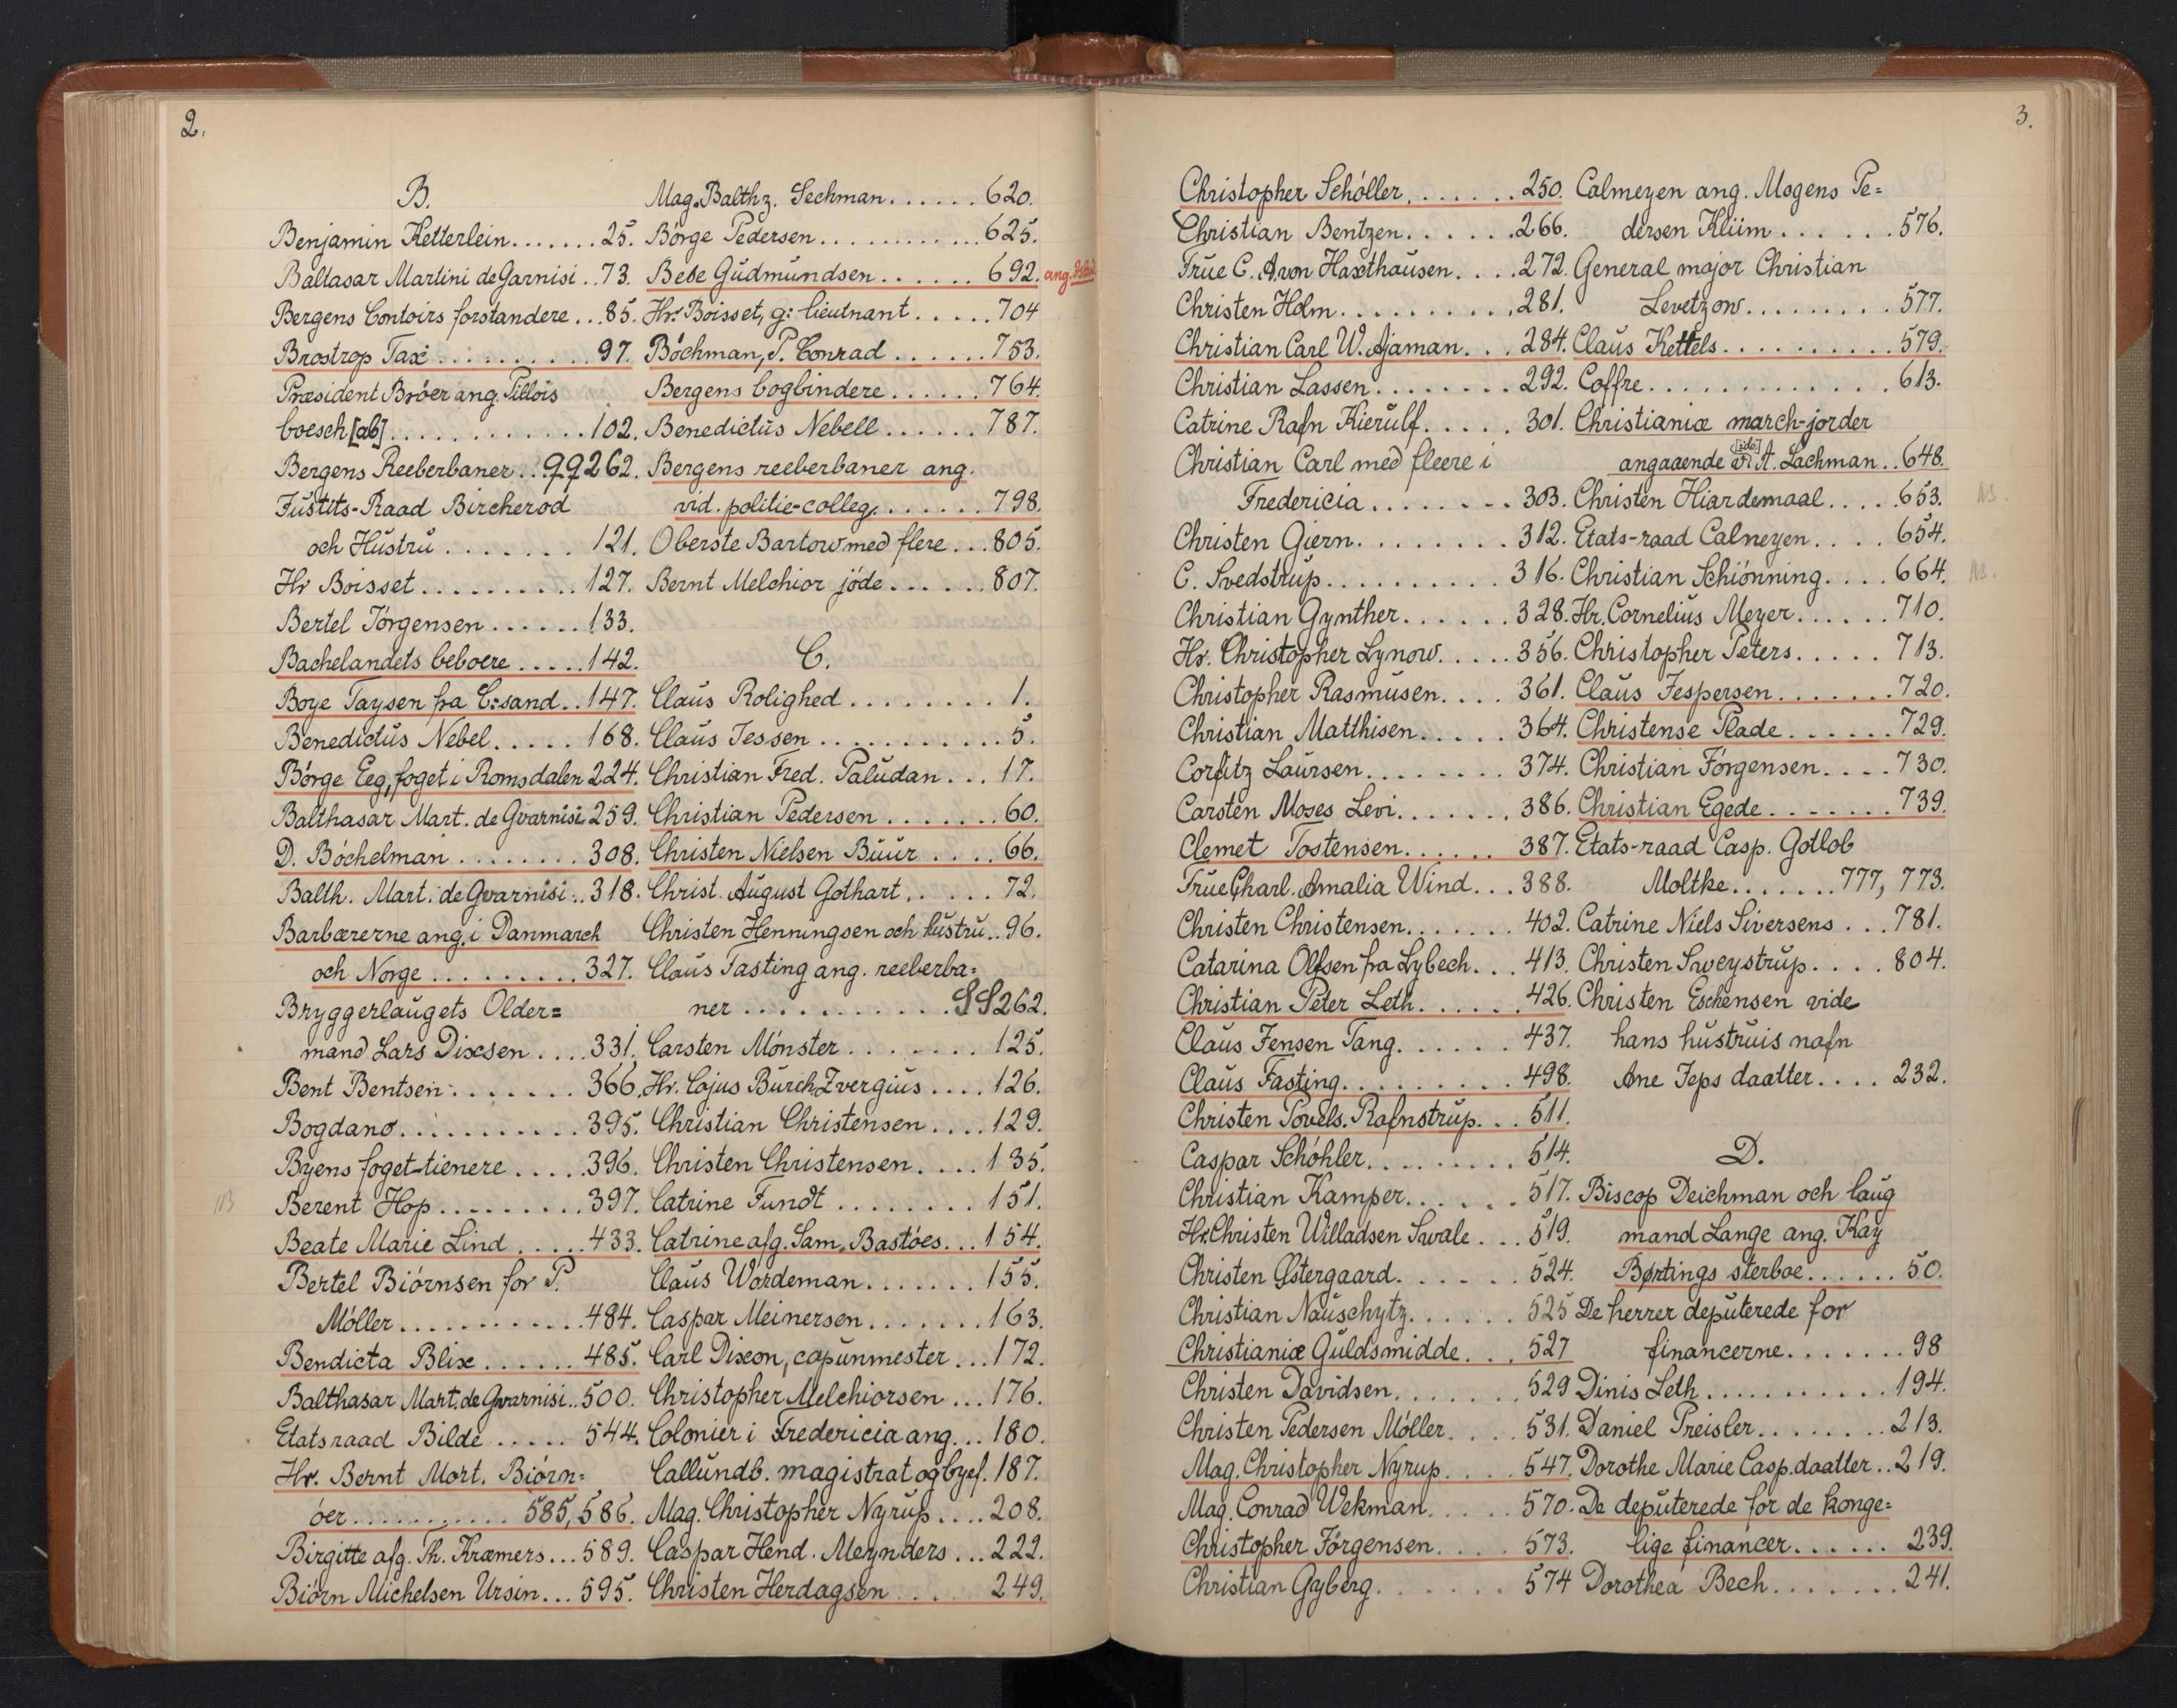 2.
B.
Benjamin Ketterlein.......25.
Baltasar Martini de Garnisi..73.
Bergens Contoirs forstandere...85.
Brostrop Tax..........97.
Præsident Bröer ang. Tillois
boesch [ab].............102.
Bergens Reeberbaner..99262.
Justits-Raad Bircherod
och Hustru.......121.
Hr Boisset..........127.
Bertel Jörgensen......133.
Bachelandets beboere.....142.
Boye Taysen fra C:sand..147.
Benedictus Nebel.....168.
Börge Eeg, foget i Romsdalen 224.
Balthasar Mart. de Gvarnisi 259.
D. Böchelman........308.
Balth. Mart. de Gvarnisi..318.
Barbærerne ang. i Danmarch
och Norge.........327.
Bryggerlaugets Older=
mand Lars Dixsen....331.
Bent Bentsen.......366.
Bogdano...........395.
Byens foget-tienere.....396.
NB Berent Hop.........397.
Beate Marie Lind.....433.
Bertel Biörnsen for P.
Möller...........484.
Bendicta Blix......485.
Balthasar Mart. de Gvarnisi..500.
Etatsraad Bilde.....544.
Hr. Bernt Mort. Biörn=
öer...........585, 586.
Birgitte afg. Th. Kræmers...589.
Biörn Michelsen Ursin...595.
Mag. Balthz. Sechman......620.
Börge Pedersen...........625.
Bese Gudmundsen......692. ang. Isld
Hr. Boisset, g: lieutnant.....704
Böchman, P. Conrad......753.
Bergens bogbindere......764.
Benedictus Nebell......787.
Bergens reeberbaner ang.
vid. politie-colleg.......798.
Oberste Bartow med flere...805.
Bernt Melchior jöde......807.
C.
Claus Rolighed........1.
Claus Jessen...........5.
Christian Fred. Paludan...17.
Christian Pedersen.......60.
Christen Nielsen Buur....66.
Christ. August Gothart......72.
Christen Henningsen och hustru..96.
Claus Fasting ang. reeberba=
ner...........SS262.
Carsten Mönster........125.
Hr. Cojus Burch Zvergius....126.
Christian Christensen....129.
Christen Christensen....135.
Catrine Fundt........151.
Catrine afg. Sam. Bastöes...154.
Claus Wordeman.......155.
Caspar Meinersen.......163.
Carl Dixon, capunmester...172.
Christopher Melchiorsen...176.
Colonier i Fredericia ang...180.
Callundb. magistrat og byef. 187.
Mag. Christopher Nyrup....208.
Caspar Hend. Meynders...222.
Christen Herdagsen....249.
3.
Christopher Schöller.......250.
Christian Bentzen......266.
Frue C. A. von Haxthausen....272.
Christen Holm..........281.
Christian Carl W. Ajaman...284.
Christian Lassen........292.
Catrine Rafn Kierulf.....301.
Christian Carl med fleere i
Fredericia........303.
Christen Giern.........312.
C. Svedstrup..........316.
Christian Gynther......328.
Hr. Christopher Lynow.....356.
Christopher Rasmusen....361.
Christian Matthisen.....364.
Corfitz Laursen........374.
Carsten Moses Levi.......386.
Clemet Tostensen......387.
Frue Charl. Amalia Wind...388.
Christen Christensen.......402.
Catarina Olfsen fra Lybech...413.
Christian Peter Leth......426.
Claus Jensen Tang......437.
Claus Fasting.........498.
Christen Povels. Rafnstrup...511.
Caspar Schöhler.........514.
Christian Kamper......517.
Hr. Christen Willadsen Swale...519.
Christen Østergaard......524.
Christian Nauschytz......525
Christianiæ Guldsmidde...527
Christen Davidsen.......529
Christen Pedersen Möller....531.
Mag. Christopher Nyrup....547.
Mag. Conrad Wekman.....570.
Christopher Jörgensen....573.
Christian Gyberg.......574
Calmeyen ang. Mogens Pe=
dersen Kliim......576.
General major Christian
Levetzow.........577.
Claus Kettels..........579.
Coffre.............613.
Christianiæ march-jorder
angaaende vi[ide] A. Lachman..648.
Christen Hiardemaal.....653. NB.
Etats-raad Calneyen....654.
Christian Schiönning....664. NB.
Hr. Cornelius Meyer......710.
Christopher Peters.....713.
Claus Jespersen.......720.
Christense Plade......729.
Christian Jörgensen....730.
Christian Egede.......739.
Etats-raad Casp. Gotlob
Moltke.......777, 773.
Catrine Niels Siversens...781.
Christen Sweystrup....804.
Christen Eschensen vide
hans hustruis nafn
Ane Jeps daatter....232.
D.
Biscop Deichman och laug
mand Lange ang. Kay
Børtings sterboe......50.
De herrer deputerede for
financerne.......98
Dinis Leth...........194.
Daniel Preisler........213.
Dorothe Marie Casp.daatter..219.
De deputerede for de konge=
lige financer......239.
Dorothea Bech.......241.